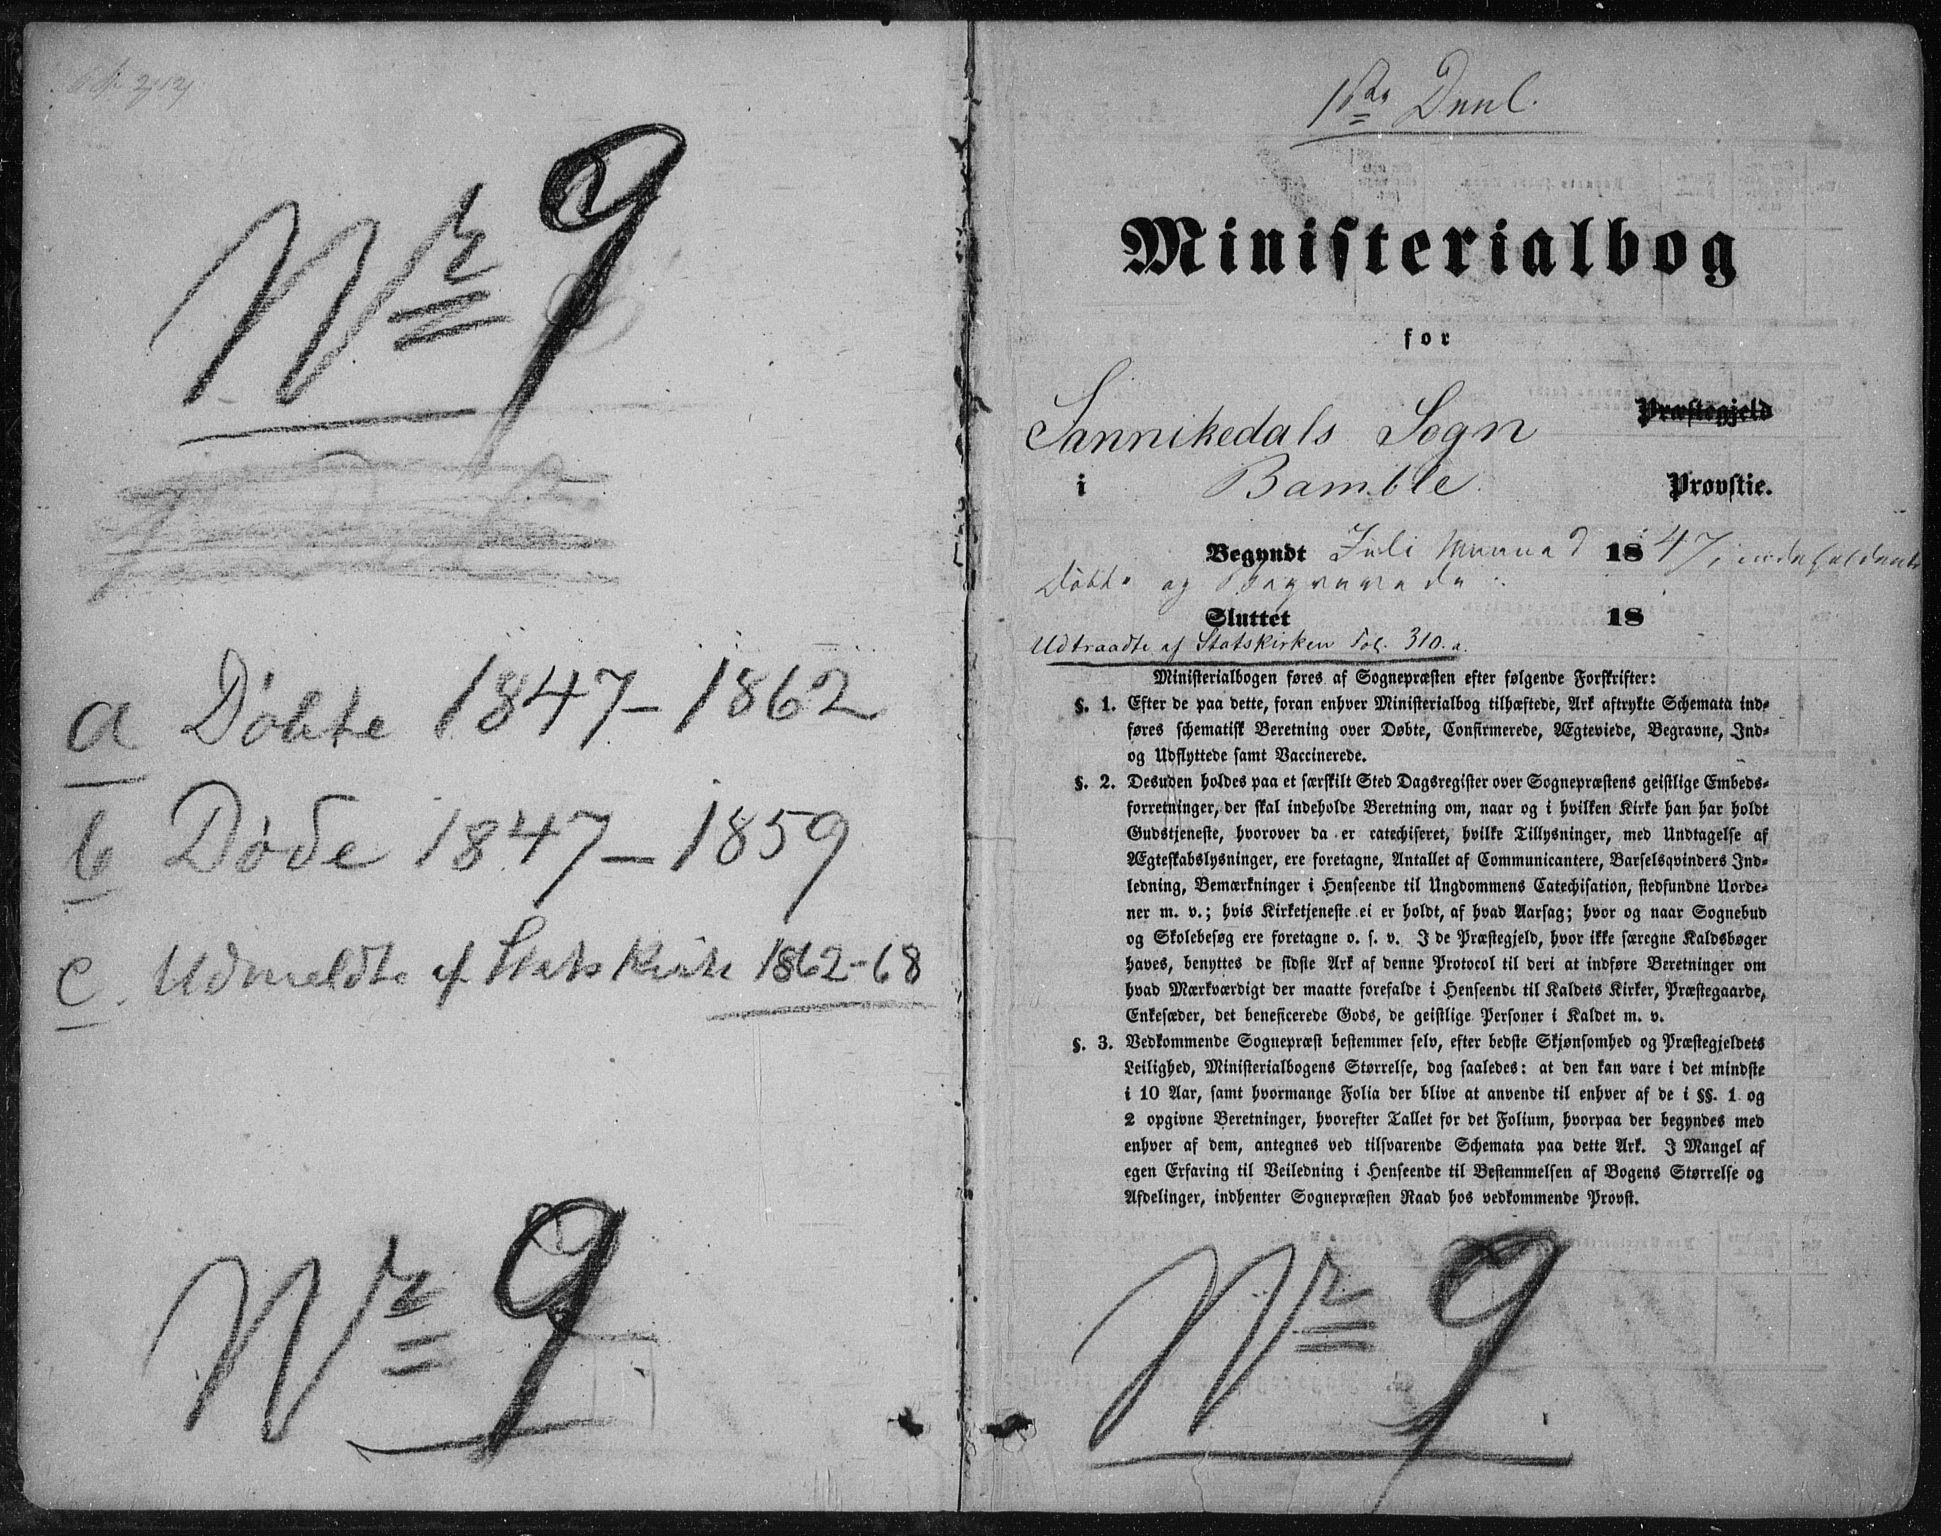 Nr 9
a Döbte 1847–1862
b Døde 1847–1859
c. Udmeldte af Statskirke 1862-68
Nr 9
1ste Deel.
Ministerialbog
for
Sannikedals Sogn Præstegjeld
i Bamble Provstie.
Begyndt Juli Maaned 1847, indeholdende
Døbte og Begravede.
Sluttet 18
Udtraadte af Statskirken Fol. 310.a.
Ministerialbogen føres af Sognepræsten efter følgende Forskrifter:
§. 1. Efter de paa dette, foran enhver Ministerialbog tilhæftede, Ark aftrykte Schemata ind-
føres schematisk Beretning over Døbte, Confirmerede, Ægteviede, Begravne, Ind-
og Udflyttede samt Vaccinerede.
§. 2. Desuden holdes paa et særskilt Sted Dagsregister over Sognepræstens geistlige Embeds-
forretninger, der skal indeholde Beretning om, naar og i hvilken Kirke han har holdt
Gudstjeneste, hvorover da er catechiseret, hvilke Tillysninger, med Undtagelse af
Ægteskabslysninger, ere foretagne, Antallet af Communicantere, Barselsqvinders Ind-
ledning, Bemærkninger i Henseende til Ungdommens Catechisation, stedfundne Uorde-
ner m. v.; hvis Kirketjeneste ei er holdt, af hvad Aarsag; hvor og naar Sognebud
og Skolebesøg ere foretagne o. s. v. I de Præstegjeld, hvor ikke særegne Kaldsbøger
haves, benyttes de sidste Ark af denne Protocol til deri at indføre Beretninger om
hvad Mærkværdigt der maatte forefalde i Henseende til Kaldets Kirker, Præstegaarde,
Enkesæder, det beneficerede Gods, de geistlige Personer i Kaldet m. v.
§. 3. Vedkommende Sognepræst bestemmer selv, efter bedste Skjønsomhed og Præstegjeldets
Leilighed, Ministerialbogens Størrelse, dog saaledes: at den kan vare i det mindste
i 10 Aar, samt hvormange Folia der blive at anvende til enhver af de i §§. 1 og
2 opgivne Beretninger, hvorefter Tallet for det Folium, hvorpaa der begyndes med
enhver af dem, antegnes ved tilsvarende Schemata paa dette Ark. I Mangel af
egen Erfaring til Veiledning i Henseende til Bestemmelsen af Bogens Størrelse og
Afdelinger, indhenter Sognepræsten Raad hos vedkommende Provst.
Nr 9